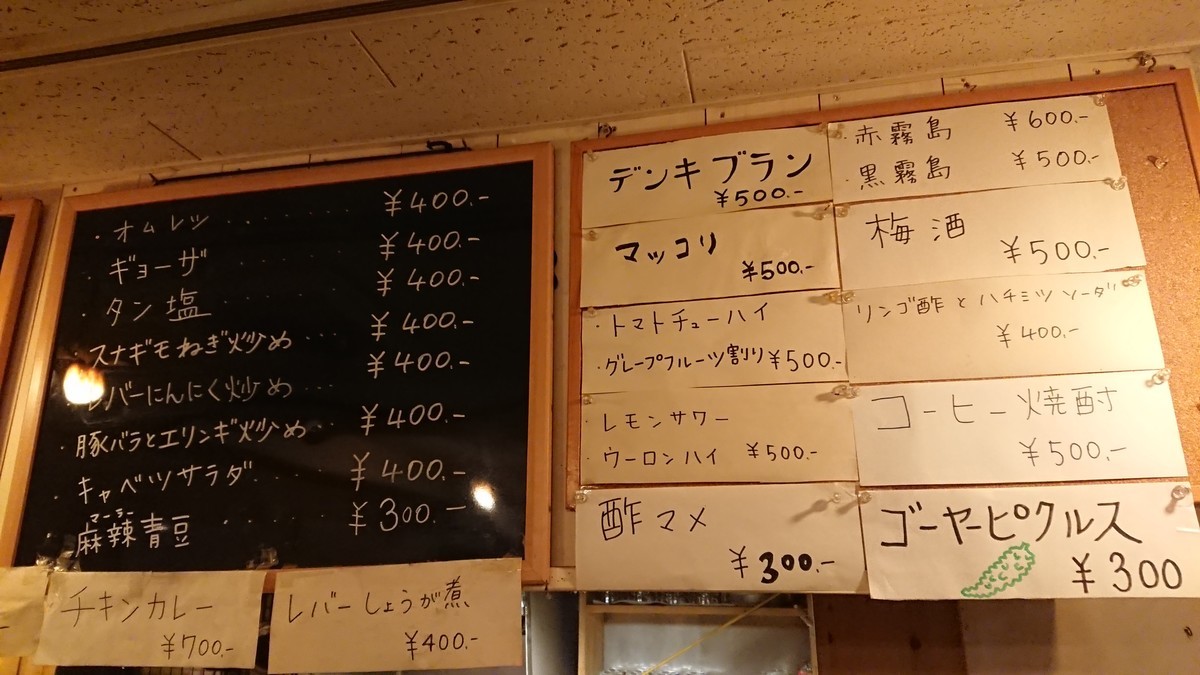 ・オムレツ ........ ¥400.-
・ギョーザ ........ ¥400.-
・タン塩 ........ ¥400.-
・スナギモねぎ炒め ¥400.-
・レバーにんにく炒め ... ¥400.-
・豚バラとエリンギ炒め... ¥400.-
・キャベツサラダ...... ¥400.-
マーラー
・麻辣青豆 ...... ¥300.-
チキンカレー
¥700.-
レバーしょうが煮
¥400.-
デンキブラン
¥500.-
マッコリ
¥500.-
・トマトチューハイ
・グレープフルーツ割り ¥500.-
・レモンサワー
・ウーロンハイ ¥500.-
酢マメ
¥300.-
・赤霧島 ¥600.-
・黒霧島 ¥500.-
梅酒
¥500.-
リンゴ酢とハチミツソーダ
¥400.-
コーヒー焼酎
¥500.-
ゴーヤーピクルス
¥300